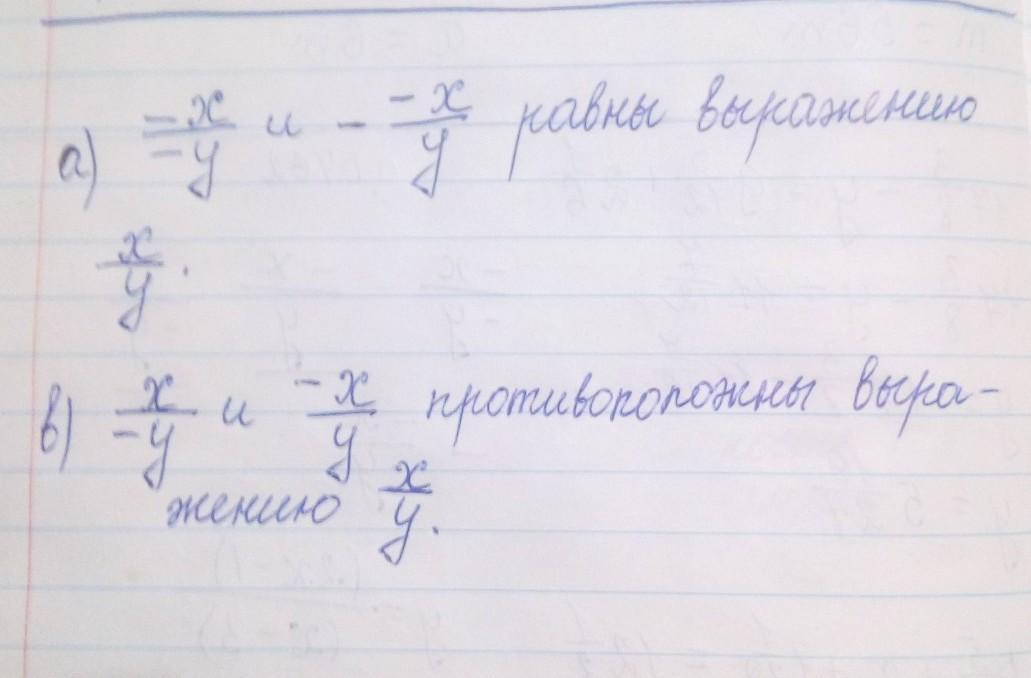 а) \frac{-x}{-y} и - \frac{-x}{y} равны выражению
\frac{x}{y}.
в) \frac{x}{-y} и \frac{-x}{y} противоположны выра-
жению \frac{x}{y}.